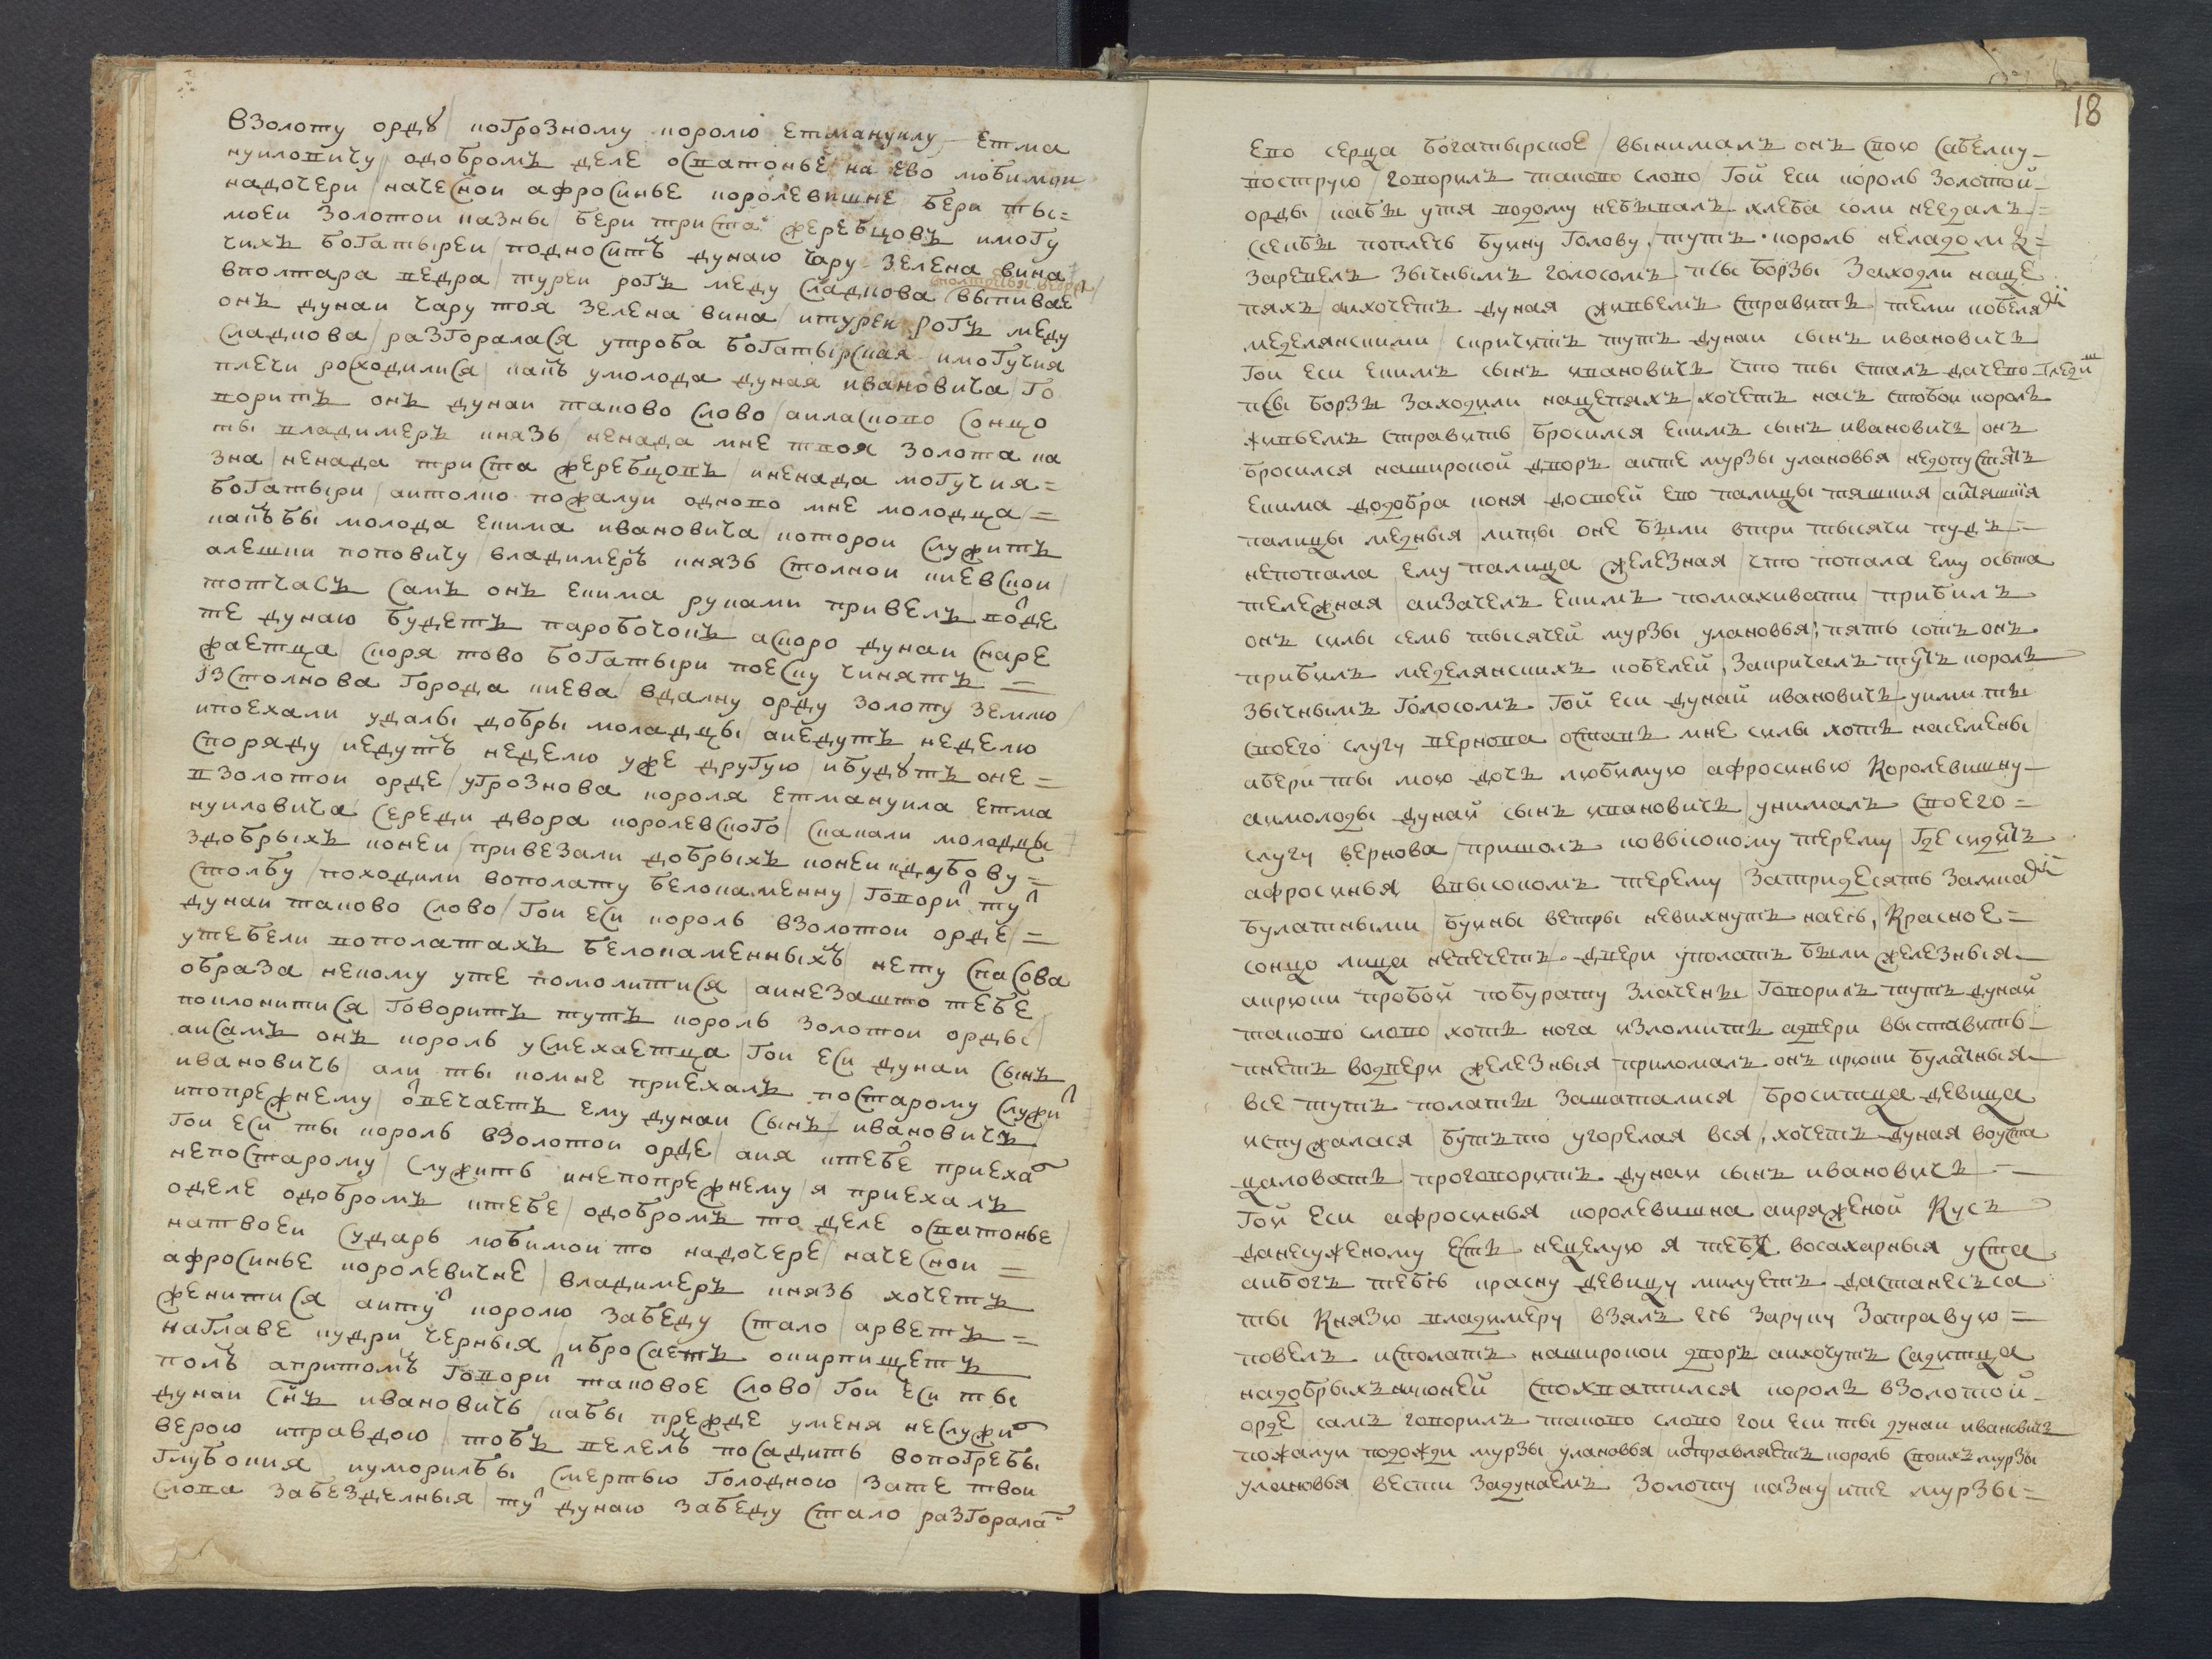 Взолоту орду / погрозному королю етмануилу етма
нуиловичу / одобромъ деле осватонье / на ево любимои
надочери / начеснои афросинье королевишне / бери ты=
моеи золотои казны / бери триста жеребцовъ имогу
чихъ богатыреи / подноситъ дунаю чару зелена вина
вполтара ведра / туреи рогъ меду сладкова вполтретья ведра / выпивае
онъ дунаи чару тоя зелена вина / итуреи рогъ меду
сладкова / разгоралася утроба богатырская имогучия
плечи росходилися / какъ умолода дуная ивановича / го
воритъ онъ дунаи таково слово / аиласково сонцо
ты владимеръ князь / ненада мне твоя золота ка
зна / ненада триста жеребцовъ / иненада могучия=
богатыри / аитолко пожалуи одново мне молодца /=
какъбы молода екима ивановича / которои служитъ
алешки поповичу / владимеръ князь столнои киевскои /
тотчасъ самъ онъ екима руками привелъ / воде
те дунаю будетъ паробочокъ / аскоро дунаи снаре
жаетца / скоря тово богатыри поеску чинятъ =
Iзстолнова города киева / вдалну орду золоту землю /
ипоехали удалы добры моладцы / аиедутъ неделю
споряду / иедутъ неделю уже другую / ибудутъ оне=
взолотои орде / угрознова короля етмануила етма
нуиловича / середи двора королевского / скакали молодцы
здобрыхъ конеи / привезали добрыхъ конеи кдубову=
столбу / походили вополату белокаменну / говори ту
дунаи таково слово / гои еси король взолотои орде /=
утебели вополатахъ белокаменныхъ / нету спасова
образа / некому уте помолитися / аинезашто тебе
поклонитися / говоритъ тутъ король золотои орды /
аисамъ онъ король усмехаетца / гои еси дунаи сынъ
ивановичь / али ты комне приехалъ постарому служи
ипопрежнему / ответчаетъ ему дунаи сынъ ивановичъ
гои еси ты король взолотои орде / аия ктебе приеха
непостарому / служить инепопрежнему / я приехалъ
оделе одобромъ ктебе / одобромъ то деле осватонье /
натвоеи сударь любимои то надочере / начеснои =
афросинье королевичне / владимеръ князь хочетъ
женитися / аиту королю забеду стало / арветъ =
наглаве кудри черныя / ибросаетъ окирпищетъ
полъ априломъ говори таковое слово / гои еси ты
дунаи снъ ивановичь / кабы прежде уменя неслужи
верою иправдою / тобъ велелъ посадить вопогребы
глубокия / иуморилъбы смертью голодною / зате твои
слова забезделныя / ту дунаю забеду стало / разгорала
18
ево серца богатырское / вынималъ онъ свою сабелку
вострую / говорилъ таково слово / гой еси король золотой
орды / кабъ утя водому небывалъ / хлеба соли неедалъ /=
ссекбы поплечь буйну голову / тутъ король неладомъ=
заревелъ зычнымъ голосомъ / псы борзы заходли наце
пяхъ / аихочетъ дуная живьемъ стравитъ / теми кобеля
меделянскими / скричитъ тутъ дунаи сынъ ивановичъ /
гои еси екимъ сынъ ивановичъ / что ты сталъ дачево гледи
псы борзы заходили нацепяхъ / хочетъ насъ стобои король
живьемъ стравить / бросился екимъ сынъ ивановичъ / онъ
бросился нашироокой дворъ / аите мурзы улановья / недопустя
екима додобра коня / досвоей ево палицы тяшкия / атяшкия
палицы медныя / литы оне были втри тысячи пудъ /=
непопала ему палица железная / что попала ему осьта
тележная / аизачелъ екимъ помахивати / прибилъ
онъ силы семь тысячей мурзы улановья / пять сотъ онъ
прибилъ меделянскихъ кобелей / закричалъ тутъ король
зычнымъ голосомъ / гой еси дунай ивановичъ / уими ты
своего слугу вернова / оставь мне силы хоть насемены /
абери ты мою дочь любимую / афросинью Королевишну
аимолоды дунай сынъ ивановичъ / унималъ своего =
слугу вернова / пришолъ ковысокому терему / где сидитъ
афросинья ввысокомъ терему / затридесять замка
булатными / буйны ветры невихнутъ наеь / Красное=
сонцо лица непечетъ / двери уполатъ были железныя
аикрюки пробои побулату злачены / говорилъ тутъ дунай
таково слово / хоть нога изломить адвери выставить
пнетъ водвери железныя / приломалъ онъ крюки булатныя
все тутъ полаты зашаталися / броситца девица
испужалася / будьто угорелая вся / хочетъ дуная воуста
целовать / проговоритъ дунаи сынъ ивановичъ /=
гой еси афросинья королевишна / аиряженой Кусъ
данесуженому есть / нецелую я тебя восахарныя уста
аибогъ тебя красну девицу милуетъ / дастанесьса
ты Князю владимеру / взялъ еь заруку заправую=
повелъ исполатъ нашироокои дворъ / аихочутъ садитца
надобрыхъ коней / спохватился король взолотой
орде / самъ говорилъ таково слово / гои еси ты дунаи ивановичъ
пожалуи подожди мурзы улановья / иотправляетъ король своихъ мурзы
улановья / вести задунаемъ золоту казну / ите мурзы=